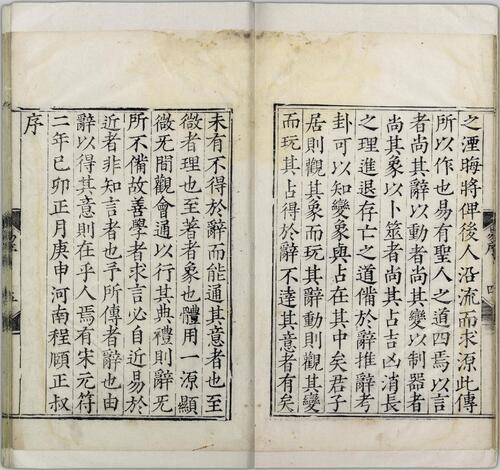 之湮晦將俾後人沿流而求源此傳
所以作也易有聖人之道四焉以言
者尚其辭以動者尚其變以制器者
尚其象以卜筮者尚其占吉凶消長
之理進退存亡之道備於辭推辭考
卦可以知變象與占在其中矣君子
居則觀其象而玩其辭動則觀其變
而玩其占得於辭不達其意者有矣
未有不得於辭而能通其意者也至
微者理也至著者象也體用一源顯
微无間觀會通以行其典禮則辭无
所不備故善學者求言必自近易於
近者非知言者也予所傳者辭也由
辭以得其意則在乎人焉有宋元符
二年已卯正月庚申河南程頤正叔
序